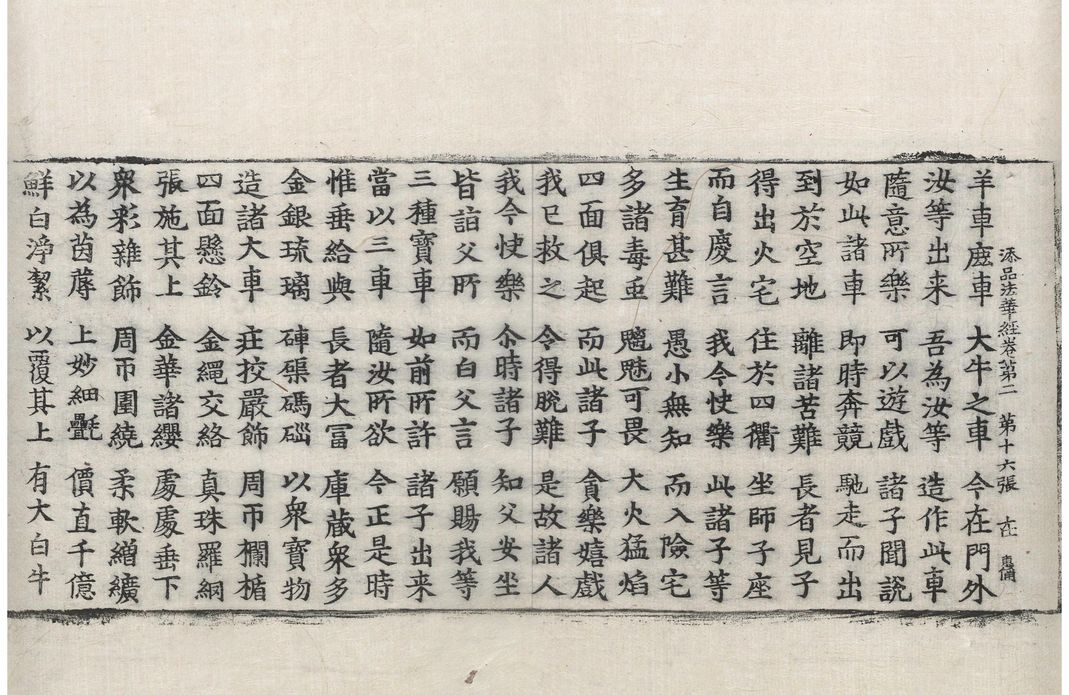 添品法華經卷第二 第十六張 在
羊車鹿車 大牛之車 今在門外
汝等出来 吾為汝等 造作此車
隨意所樂 可以遊戲 諸子聞說
如此諸車 即時奔競 馳走而出
到於空地 離諸苦難 長者見子
得出火宅 住於四衢 坐師子座
而自慶言 我今快樂 此諸子等
生育甚難 愚小無知 而入險宅
多諸毒虫 魑魅可畏 大火猛焰
四面俱起 而此諸子 貪樂嬉戲
我已救之 令得脫難 是故諸人
我今快樂 尒時諸子 知父安坐
皆詣父所 而白父言 願賜我等
三種寶車 如前所許 諸子出来
當以三車 隨汝所欲 今正是時
惟垂給與 長者大冨 庫藏衆多
金銀琉璃 硨磲碼碯 以衆寶物
造諸大車 莊挍嚴飾 周帀欄楯
四面懸鈴 金繩交絡 真珠羅網
張施其上 金華諸纓 處處垂下
衆彩雜飾 周帀圍繞 柔軟繒纊
以為茵蓐 上妙細㲲 價直千億
鮮白淨潔 以覆其上 有大白牛